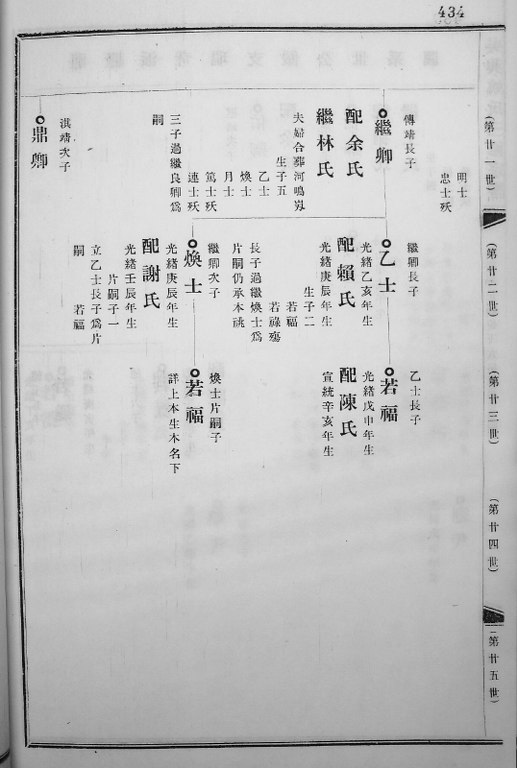 434
（第廿一世）
（第廿二世）
（第廿三世）
（第廿四世）
（第廿五世）
明士
忠士殀
傳靖長子
繼卿
配余氏
繼林氏
夫婦合葬河鳴
生子五
乙士
煥士
月士
篤士殀
連士殀
三子過繼良卿為
嗣
淇靖次子
鼎卿
繼卿長子
乙士
光緒乙亥年生
配賴氏
光緒庚辰年生
生子二
若福
若祿殤
長子過繼煥士為
片嗣仍承本祧
繼卿次子
煥士
光緒庚辰年生
配謝氏
光緒壬辰年生
片嗣子一
立乙士長子為片
嗣　若福
乙士長子
若福
光緒戊申年生
配陳氏
宣統辛亥年生
煥士片嗣子
若福
詳上本生木名下